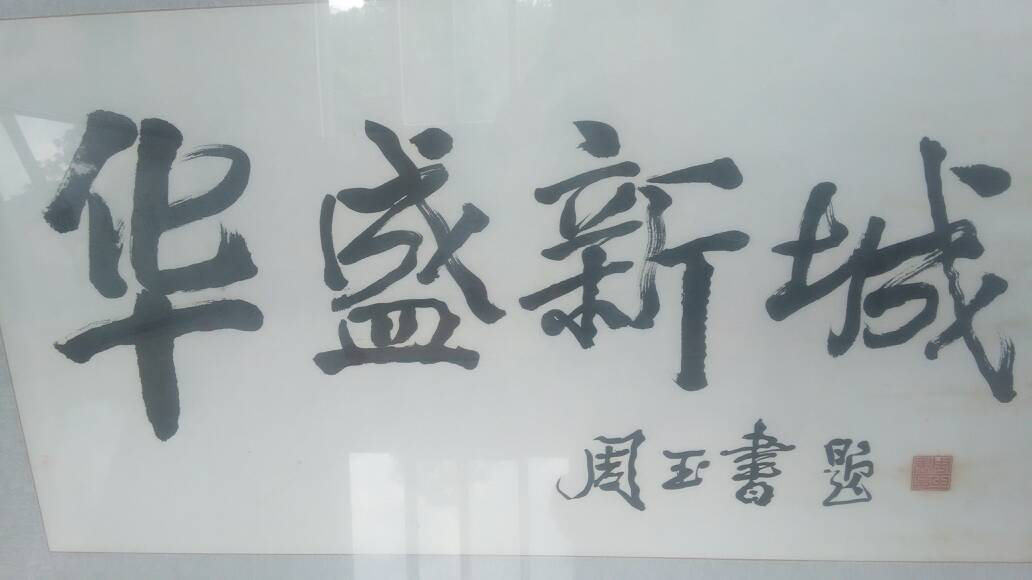 华盛新城
周玉书题